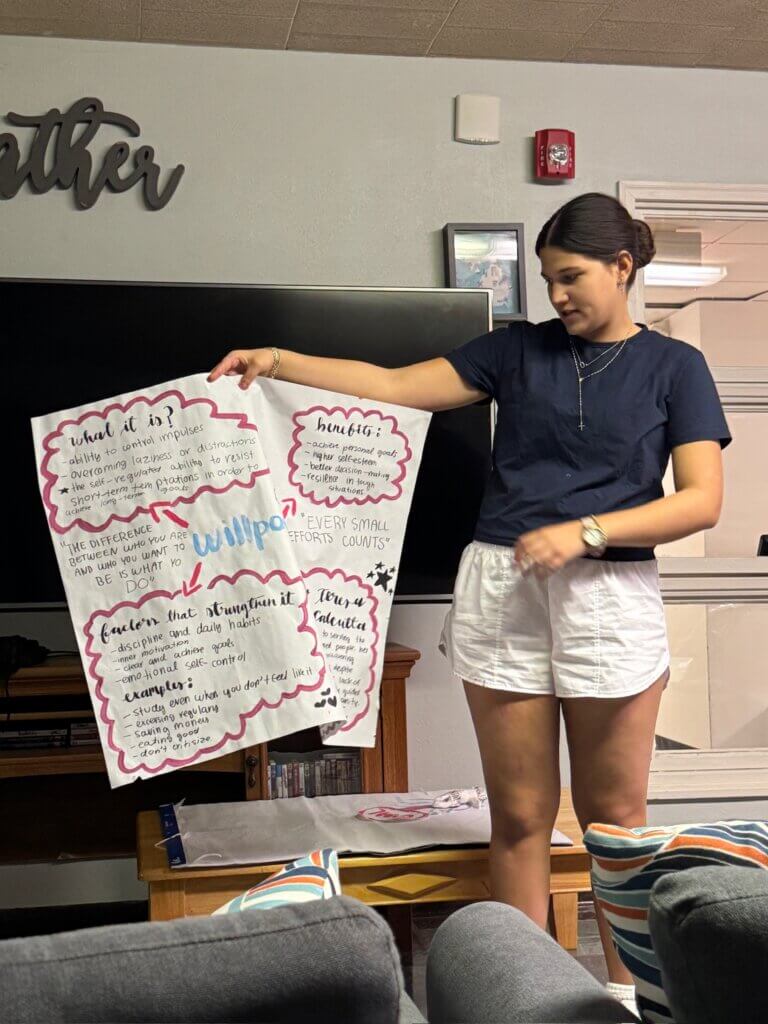 ather
FIRE
FIRE
what it is?
- ability to control impulses
- overcoming laziness or distractions
- the self-regulatory ability to resist
short-term temptations in order to
achieve long-term goals
benefits:
- achieve personal goals
- higher self-esteem
- better decision-making
- resilience in tough
situations
"THE DIFFERENCE
BETWEEN WHO YOU ARE
AND WHO YOU WANT TO
BE IS WHAT YO
DO"
Willpo
"EVERY SMALL
EFFORTS COUNTS"
factors that strengthen it
- discipline and daily habits
- inner motivation
- clear and achieve goals
- emotional self-control
examples:
- study even when you don't feel like it
- excersing regulary
- saving money
- eating good
- don't critisize
Teresa
Calcutta
to serving the
despite
lack of
guided